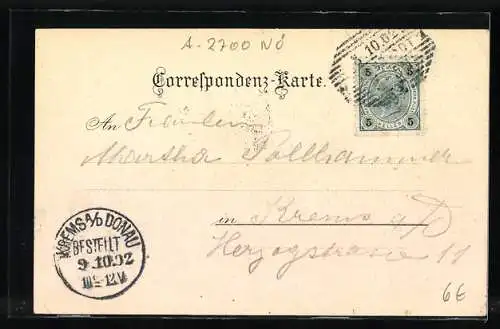 A-2700 NÖ
10.02
Correspondenz-Karte.
5 5
5 HELLER 5
An Fräulein
Martha Pollhammer
in Krems a/D
Herzogstrasse 11
KREMS A/D DONAU
BESTELLT
9.10.02
66